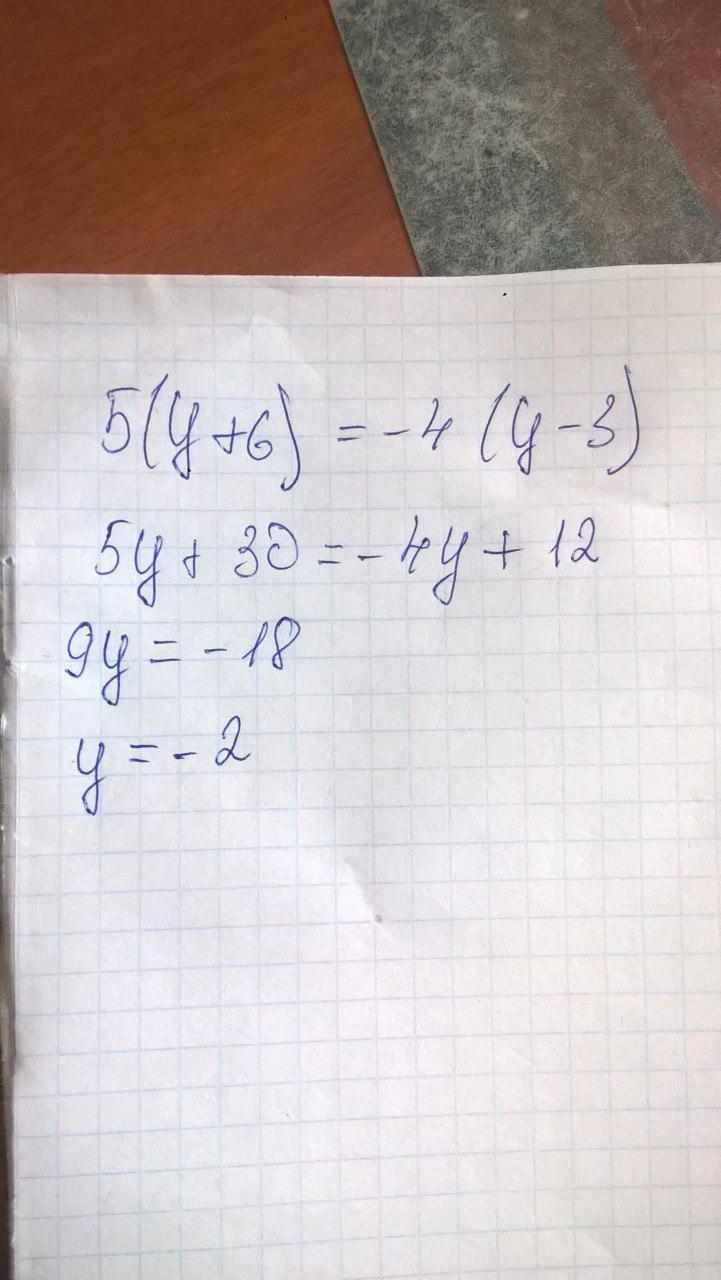 5(y+6) = -4 (y-3)
5y + 30 = -4y + 12
9y = -18
y = -2